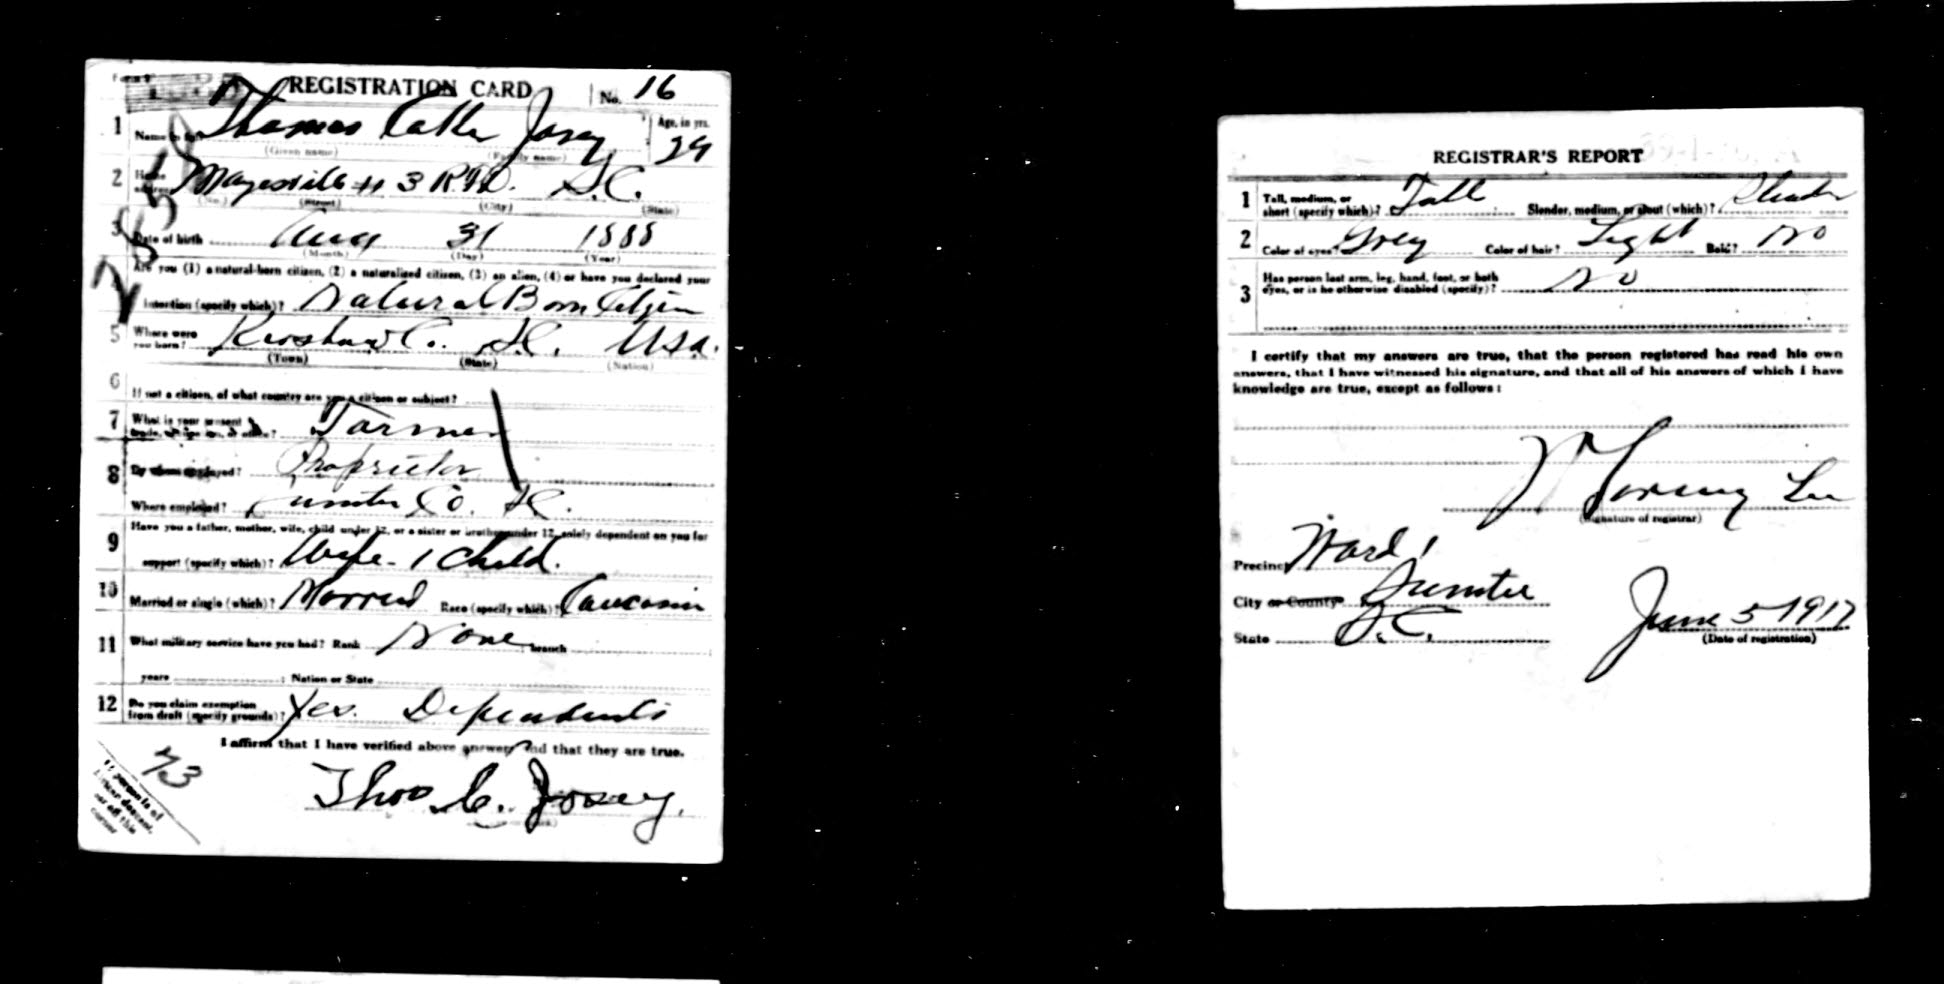 REGISTRATION CARD No. 16
1 Name in full Thomas Josey Age, in yrs. 29
(Given name) (Family name)
2 Home address Mayesville # 3 R.F.D. S.C.
(No.) (Street) (City) (State)
3 Date of birth Aug 31 1888
(Month) (Day) (Year)
Are you (1) a natural-born citizen, (2) a naturalized citizen, (3) an alien, (4) or have you declared your
intention (specify which)? Natural Born Citizen
5 Where were you born? Kershaw Co. S.C. USA.
(Town) (State) (Nation)
6 If not a citizen, of what country are you a citizen or subject?
7 What is your present trade, occupation, or office? Farmer
8 By whom employed? Proprietor
Where employed? Sumter Co. S.C.
9 Have you a father, mother, wife, child under 12, or a sister or brother under 12, solely dependent on you for
support (specify which)? Wife - 1 Child.
10 Married or single (which)? Married Race (specify which)? Caucasian
11 What military service have you had? Rank None ; branch
years ; Nation or State
12 Do you claim exemption from draft (specify grounds)? Yes. Dependents
I affirm that I have verified above answers and that they are true.
73
If person is of
African descent,
tear off this
corner
Thos C. Josey.
REGISTRAR'S REPORT
1 Tall, medium, or short (specify which)? Tall Slender, medium, or stout (which)? Slender
2 Color of eyes? Grey Color of hair? Light Bald? No
3 Has person lost arm, leg, hand, foot, or both eyes, or is he otherwise disabled (specify)? No
I certify that my answers are true, that the person registered has read his own
answers, that I have witnessed his signature, and that all of his answers of which I have
knowledge are true, except as follows:
Lee
(Signature of registrar)
Precinct Ward 1
City or County Sumter
State S.C.
June 5 1917
(Date of registration)